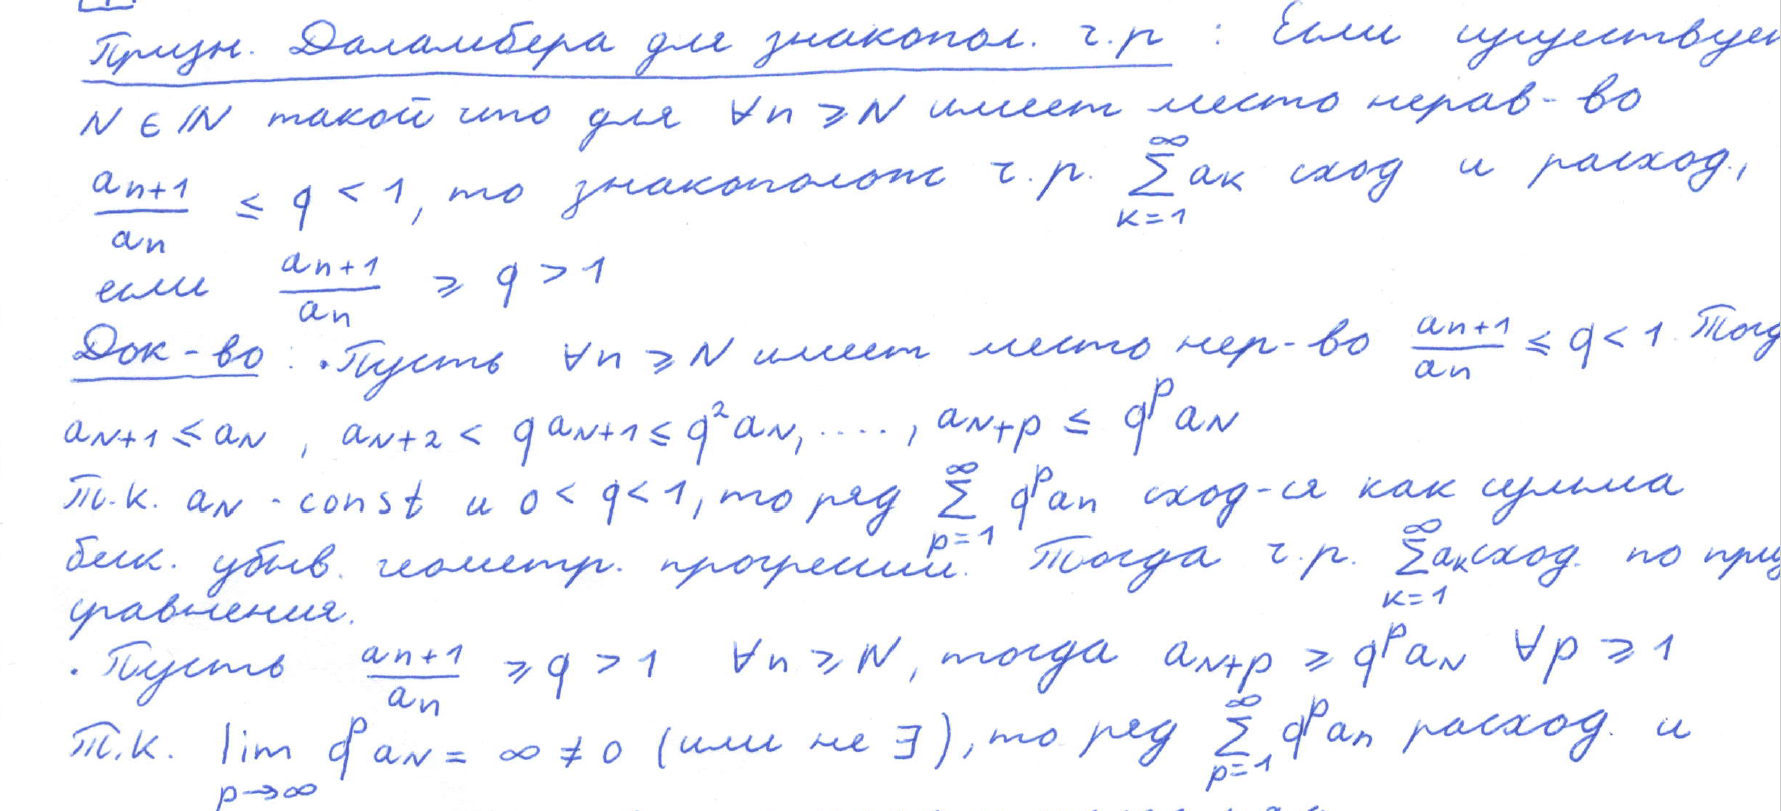 Призн. Даламбера для знакопол. ч.р : Если существует
N ∈ ℕ такой что для ∀n ⩾ N имеет место нерав-во
an+1/an ≤ q < 1, то знакополож ч.р. ∑_{k=1}^{∞} ak сход и расход,
если an+1/an ⩾ q > 1
Док-во : • Пусть ∀n ⩾ N имеет место нер-во an+1/an ≤ q < 1. Тогд
aN+1 ≤ aN , aN+2 < q aN+1 ≤ q² aN, ...., aN+p ≤ q^p aN
Т.к. aN - const и 0 < q < 1, то ряд ∑_{p=1}^{∞} q^p an сход-ся как сумма
беск. убыв. геометр. прогрессии. Тогда ч.р. ∑_{k=1}^{∞} ak сход. по приз
сравнения.
• Пусть an+1/an ⩾ q > 1 ∀n ⩾ N, тогда aN+p ⩾ q^p aN ∀p ⩾ 1
Т.к. lim_{p→∞} q^p aN = ∞ ≠ 0 (или не ∃), то ряд ∑_{p=1}^{∞} q^p an расход. и